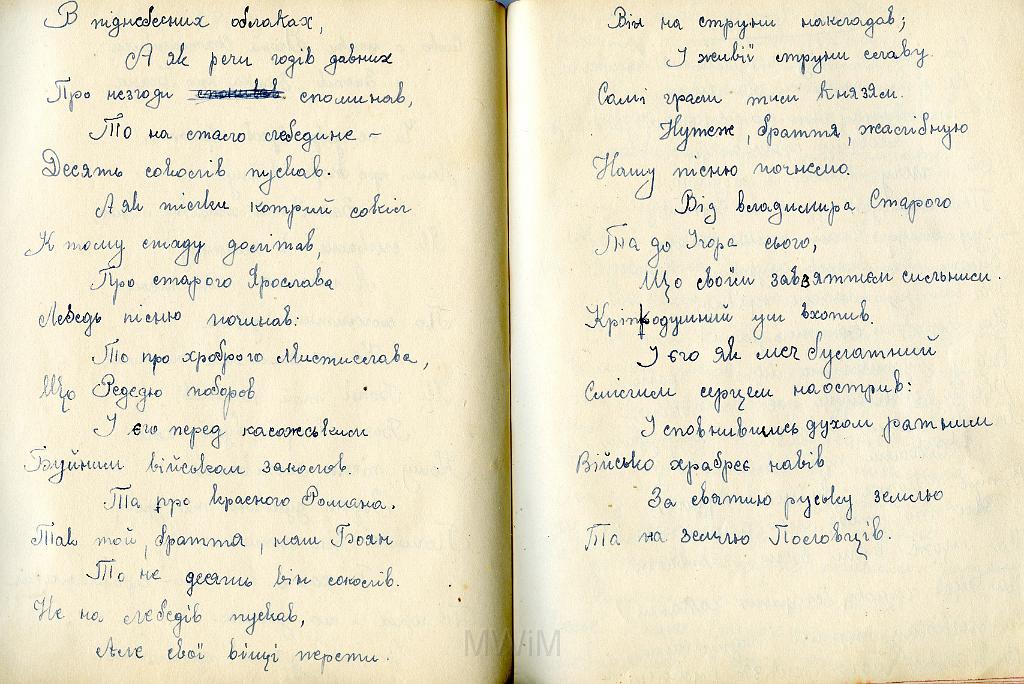 В піднебесних облаках,
А як речи годів давних
Про незгоди споминав,
То на стало лебедине –
Десять соколів пускав.
А як тільки котрий сокіл
К тому стаду долітав,
Про старого Ярослава
Лебедь пісню починав:
То про хороброго Мистислава,
Що Редедю поборов
І єго перед касожським
Буйним військом заколов.
Та про красного Романа.
Так той, браття, наш Боян
То не десять він соколів.
Не на лебедів пускав,
Але свої віщі персти.
Він на струни накладав;
І живії струни славу.
Самі грали тим Князям.
Нутеж, браття, жалібную
Нашу пісню почнемо.
Від Владимира Старого
Та до Ігора сього,
Що своїм завзяттєм сильним.
Кріпкодумний ум вхопив.
І єго як меч булатний
Смілим серцем наострив:
І сповнившись духом ратним
Військо храбреє навів
За святию руську землю
Та на землю Половців.
MWiM